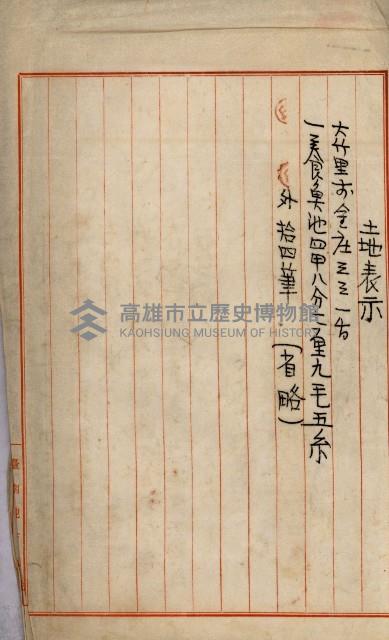 土地表示
大竹里前金庄三三一番
一養魚池四甲八分一厘九毛五糸
外拾四筆(省略)
高雄市立歷史博物館
KAOHSIUNG MUSEUM OF HISTORY